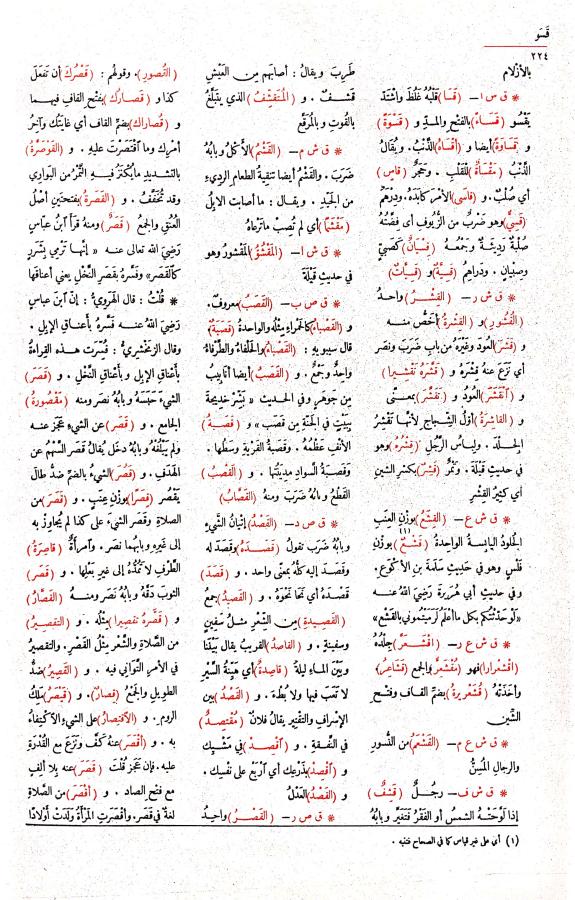 قَسَو
٢٢٤
بالأزلام
* ق س ا – (قَسَا) قَلْبُه غَلُظَ واشْتَدَّ
يَقْسُو (قَسَاءً) بالفتح والمد و (قَسْوَةً)
و (قَسَاوَةً) أيضا و (أَقْسَاهُ) الذَّنْبُ . ويُقالُ
الذَّنْبُ (مَقْسَاةٌ) للقَلْبِ . وحَجَرٌ (قاسٍ)
أي صُلْبٌ . و (قاسَى) الأَمْرَ كابَدَهُ . ودِرْهَمٌ
(قَسِيٌّ) وهو ضَرْبٌ من الزُّيُوفِ أى فِضَّتُهُ
صُلْبَةٌ رَدِيئَةٌ . وجَمْعُهُ (قِسْيَانٌ) كصَبِيٍّ
وصِبْيانٍ . ودراهِمُ (قَسِيَّةٌ) و (قَسِيَّاتٌ)
* ق ش ر – (القِشْـرُ) واحـدُ
(القُشُورِ) و (القِشْرَةُ) أَخَصُّ منـه
و (قَشَرَ) العُودَ وغَيْرَهُ من بابِ ضَرَبَ ونصر
أي نَزَعَ عنهُ قِشْرَهُ و (قَشَّرَهُ تَقْشيرا)
و (انْقَشَرَ) العُودُ و (تَقَشَّرَ) بمعـنًى
و (القاشِرَةُ) أوّلُ الشِّجاجِ لأنها تَقْشِرُ
الجِلدَ . ولِباسُ الرَّجُلِ (قِشْرُهُ) وهو
في حديثِ قَيْلَةَ . وتَمْرٌ (قَشِرٌ) بكسر الشينِ
أي كثيرُ القِشْرِ
* ق ش ع – (القَشْعُ) بوَزْنِ العِنَبِ
الجلودُ اليابِسةُ الواحدةُ (قَشْعٌ)(١) بوَزْنِ
فَلْسٍ وهو في حديثِ سَلَمَةَ بنِ الأكْوَعِ .
وفي حديثِ أبي هُرَيرَةَ رَضِيَ اللهُ عنـه
«لَوْ حَدَّثْتُكُم بكلِ ما أَعْلَمُ لَرَمَيْتُموني بالقِشَع»
* ق ش ع ر – (اقْشَعَرَّ) جِلْدُهُ
(اقْشِعْرارا) فهو (مُقْشَعِرٌّ) والجمع (قَشاعِرُ) .
وأخَذَتْهُ (قُشَعْرِيرَةٌ) بضمِّ القاف وفتْـحِ
الشّين
* ق ش ع م – (القَشْعَمُ) من النُّسورِ
والرجالِ المُسِنُّ
* ق ش ف – رجـلٌ (قَشِفٌ)
إذا لَوَّحَتْهُ الشمسُ أو الفَقْرُ فَتَغَيَّر وبابُهُ
طَرِبَ ويقالُ : أصابَهم من العَيْشِ
قَشَفٌ . و (المُتَقَشِّفُ) الذي يَتَبَلَّغُ
بالقُوتِ وبالمُرَقَّعِ
* ق ش م – (القَشْمُ) الأَكْلُ وبابُهُ
ضَرَبَ . والقَشْمُ أيضا تَنقيةُ الطعامِ الرديءِ
مِن الجَيِّدِ . ويقال : ما أصابت الإبلُ
(مَقْشَمًا) أي لم تُصِبْ ما تَرعاهُ
* ق ش ا – (المَقْشُوُّ) المَقْشورُ وهو
في حديثِ قَيْلَةَ
* ق ص ب – (القَصَبُ) معروفٌ.
و (القَصْباءُ) كالحَمْراءِ مِثْلُه والواحدةُ (قَصَبَةٌ).
قال سيبويهِ : (القَصْباءُ) والحَلْفاءُ والطَّرْفاءُ
واحدٌ وجَمْعٌ . و (القَصَبُ) أيضا أنابيبُ
مِن جَوْهَرٍ وفي الحديثِ «بَشِّرْ خديجةَ
ببَيْتٍ في الجَنّةِ مِن قَصَبٍ» و (قَصَبـةُ)
الأنْفِ عَظْمُهُ . وقَصَبةُ القَرْيةِ وسَطُها .
وقَصَبةُ السَّوادِ مدينتُها . و (القَصْبُ)
القَطْعُ وبابُهُ ضَرَبَ ومنهُ (القَصَّابُ)
* ق ص د – (القَصْدُ) إتْيانُ الشَّيءِ
وبابُهُ ضَرَبَ تقولُ (قَصَـدَهُ) وقَصَدَ له
وقَصَدَ إليه كلُّه بمعنًى واحد . و (قَصَدَ)
قَصْدَهُ أي نَحَا نَحْوَهُ . و (القَصِيدُ) جمعُ
(القَصِيدةِ) مِن الشِّعرِ مِثلُ سَفِينٍ
وسفينةٍ . و (القاصِدُ) القريبُ يقالُ بيْنَنا
وبيْنَ الماءِ ليلةٌ (قاصِدةٌ) أي هَيِّنةُ السَّيْرِ
لا تَعَبَ فيها ولا بُطْءَ . و (القَصْدُ) بين
الإسْرافِ والتَّقْتِيرِ يقالُ فلانٌ (مُقْتَصِدٌ)
في النَّفَقةِ . و (اقْصِـدْ) في مَشْيِـكَ
و (اقْصِدْ) بذَرْعِكَ أي أَرْبِعْ على نفسِك .
و (القَصْدُ) العَدْلُ
* ق ص ر – (القَصْـرُ) واحِـدُ
(القُصورِ) . وقولُهم : (قَصْرُكَ) أن تَفعَلَ
كذا و (قَصارُك) بفتْحِ القافِ فيهـما
و (قُصاراك) بضمِّ القاف أي غايتُك وآخِرُ
أمْرِك وما اقْتَصَرْتَ عليهِ . و (القَوْصَرَّةُ)
بالتشديدِ ما يُكنَزُ فيـهِ التَّمْرُ من البَوَاري
وقد تُخَفَّفُ . و (القَصَرَةُ) بفتحتَينِ أصْلُ
العُنُقِ والجمعُ (قَصَرٌ) ومنه قَرأَ ابنُ عباسٍ
رَضِيَ اللهُ تعالى عنه « إنّها تَرْمِي بشَرَرٍ
كالقَصَرِ» وفَسَّرَهُ بقَصَرِ النَّخْلِ يعني أعناقها
* قُلْتُ : قال الهَرَوِيُّ : إنّ ابنَ عباسٍ
رَضِيَ اللهُ عنـه فَسَّرَهُ بأعناقِ الإبِلِ .
وقال الزَّمَخْشريُّ : فُسِّرَت هـذه القِراءةُ
بأعْناقِ الإبلِ و بأعْناقِ النَّخْلِ . و (قَصَرَ)
الشيءَ حَبَسَهُ وبابُهُ نَصَرَ ومنه (مَقْصُورةُ)
الجامعِ . و (قَصَرَ) عن الشيءِ عَجَزَ عنـه
ولم يَبْلُغْهُ وبابُهُ دَخَل يقالُ قَصَرَ السَّهْمُ عن
الهَدَفِ . و (قَصُرَ) الشيءُ بالضمِّ ضدُّ طالَ
يَقْصُر (قِصَرًا) بوزْنِ عِنَبٍ . و (قَصَرَ) من
الصلاةِ وقَصَرَ الشيءَ على كذا لم يُجاوِزْ به
إلى غيرِهِ وبابُهما نَصَرَ . وامرأةٌ (قاصِرَةُ)
الطَّرْفِ لا تَمُدُّهُ إلى غيرِ بعْلِها . و (قَصَر)
الثوبَ دَقَّهُ وبابُهُ نَصَرَ ومنـهُ (القَصَّارُ)
و (قَصَّرَهُ تقصيرا) مِثلُه . و (التقصيرُ)
من الصَّلاةِ والشَّعرِ مِثْلُ القَصْرِ . والتقصيرُ
في الأمرِ التَّوَاني فيه . و (القَصِيرُ) ضدُّ
الطويلِ والجمْعُ (قِصارٌ) . و (قَيْصَرُ) مَلِكُ
الروم . و (الاقْتِصارُ) على الشيءِ الاكْتِفاءُ
به . و (أقْصَرَ) عنهُ كَفَّ ونَزَعَ مع القُدْرةِ
عليه . فإن عَجَز قُلْتَ (قَصَرَ) عنه بِلا ألِفٍ
مع فتْحِ الصاد . و (أقْصَرَ) من الصَّلاةِ
لُغةٌ في قَصَر . وأقْصَرتِ المَرْأةُ وَلَدَتْ أولادًا
(١) أي على غير قياس كما في الصحاح فتنبه .